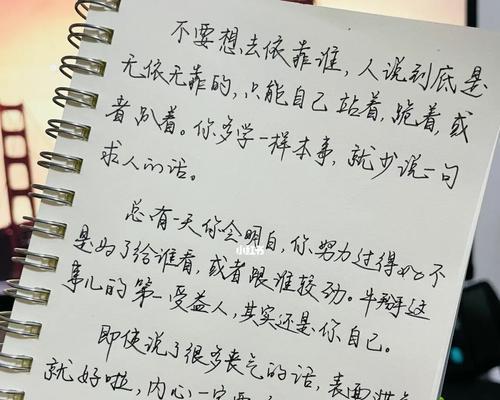 不要想去依靠谁，人说到底是
无依无靠的，只能自己站着，跪着，或
者趴着。你多学一样本事，就少说一句
求人的话。
总有一天你会明白，你努力过得好不
是为了给谁看，或者跟谁较劲。牛掰这
事儿的第一受益人，其实还是你自己。
即使说了很多丧气的话，表面
就好啦，内心一定要
小红书